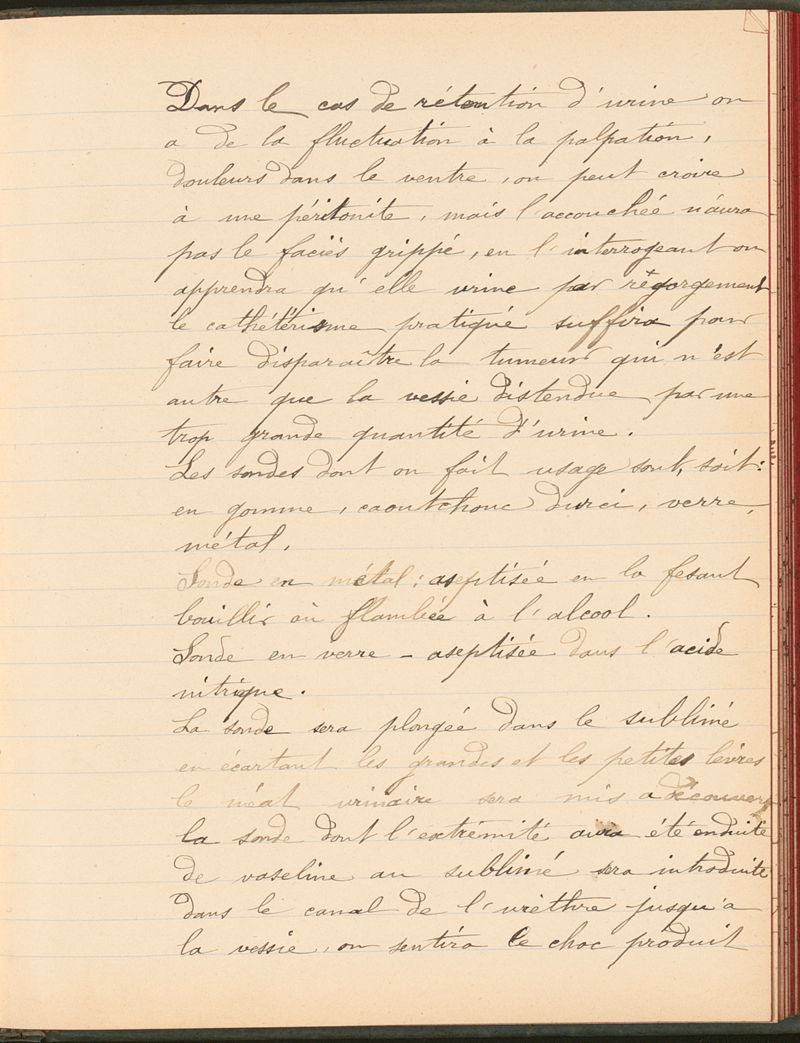 Dans le cas de rétention d'urine on
a de la fluctuation à la palpation,
douleurs dans le ventre, on peut croire
à une péritonite, mais l'accouchée n'aura
pas le faciès grippé, en l'interrogeant on
apprendra qu'elle urine par régorgement
le cathétérisme pratiqué suffira pour
faire disparaître la tumeur qui n'est
autre que la vessie distendue par une
trop grande quantité d'urine.
Les sondes dont on fait usage sont, soit:
en gomme, caoutchouc durci, verre,
métal.
Sonde en métal: aseptisée en la fesant
bouillir où flambée à l'alcool.
Sonde en verre - aseptisée dans l'acide
nitrique.
La sonde sera plongée dans le sublimé
en écartant les grandes et les petites lèvres
le méat urinaire sera mis a découvert
la sonde dont l'extrémité aura été enduite
de vaseline au sublimé sera introduite
dans le canal de l'urèthre jusqu'a
la vessie, on sentira le choc produit